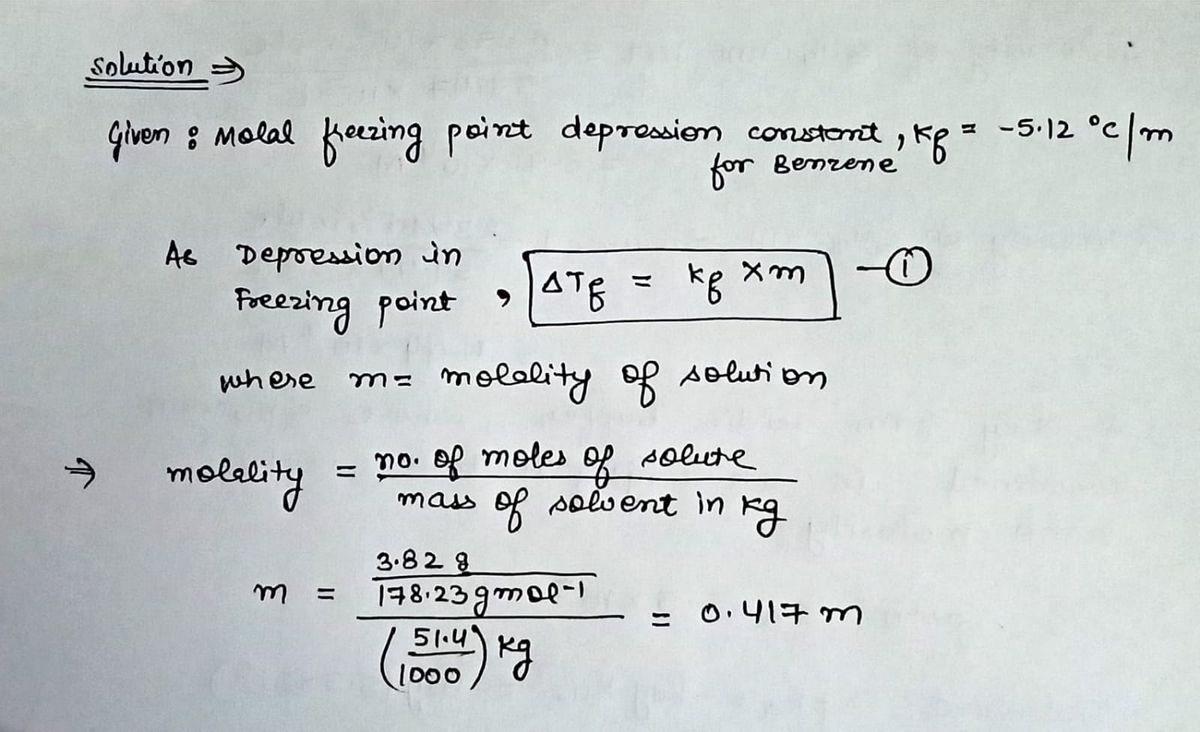 Solution ⇒
Given : Molal freezing point depression constant, Kf = -5.12 °C/m
for Benzene
As Depression in
Freezing point , ΔTf = Kf × m —①
where m = molality of solution
⇒ molality = no. of moles of solute
mass of solvent in kg
3.82 g
m = 178.23 g mol-1
= 0.417 m
(51.4
1000) kg